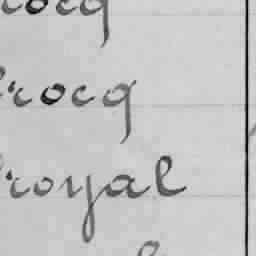 rocq
rocq
royal